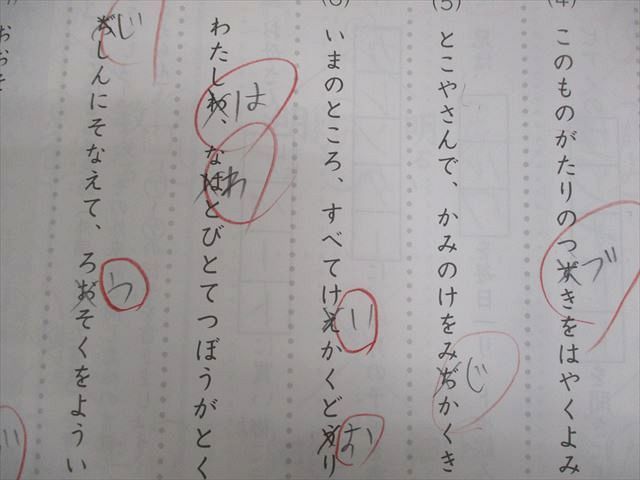 (4)
このものがたりのつずきをはやくよみ
づ
(5)
とこやさんで、かみのけをみぢかくき
じ
(6)
いまのところ、すべてけえかくどうり
い
お
わたしわ、なはとびとてつぼうがとく
は
わ
ぢしんにそなえて、ろおそくをようい
じ
う